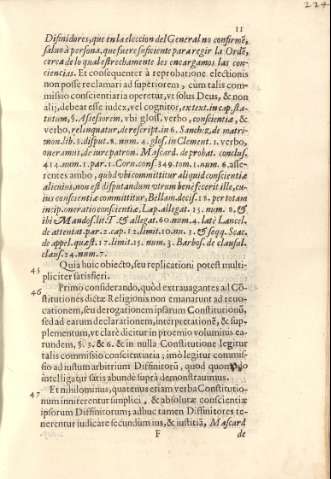 224
11
Difinidores, que en la eleccion del General no confirmē,
saluo à persona, que fuere suficiente para regir la Ordē,
cerca de lo qual estrechamente les encargamos las con-
ciencias. Et consequenter à reprobatione electionis
non posse reclamari ad superiorem, cùm talis com-
missio conscientiaria operetur, vt solus Deus, & non
alij, debeat esse iudex, vel cognitor, ex text. in cap. sta-
tutum, §. Assessorem, vbi gloss. verbo, conscientiæ, &
verbo, relinquatur, de rescript. in 6. Sanchez, de matri-
mon. lib. 3. disput. 8. num. 4. glos. in Clement. 1. verbo,
oneramus, de iure patron. Mascard. de probat. conclus.
414. num. 1. par. 1. Corn. cons. 349. tom. 1. num. 6. asse-
rentes ambo, quòd vbi committitur aliquid conscientiæ
alicuius, non est disputandum vtrum benè fecerit ille, cu-
ius conscientiæ committitur, Bellam. decis. 18. per totam
in rip. oneratio conscientiæ, Lap. allegat. 15. num. 8. &
ibi Mandos. lit. T. & allegat. 60. num. 4. latè Lancel.
de attentat. par. 2. cap. 12. limit. 10. nu. 3. & seqq. Scac.
de appel. quæst. 17. limit. 15. num. 3. Barbos. de clausul.
claus. 24. num. 7.
45 Quia huic obiecto, seu replicationi potest multi-
pliciter satisfieri.
46 Primo considerando, quòd extrauagantes ad Cō-
stitutiones dictæ Religionis non emanarunt ad reuo-
cationem, seu derogationem ipsarum Constitutionū,
sed ad earum declarationem, interpretationē, & sup-
plementum, vt clarè dicitur in proemio voluminis ea-
rundem, §. 5. & 6. & in nulla Constitutione legitur
talis commissio conscientiataria; imò legitur commis-
sio ad iustum arbitrium Diffinitorū, quod quomodo
intelligatur satis abundè suprà demonstrauimus.
47 Et nihilominus, quatenus etiam verba Constitutio-
num inniterentur simplici, & absolutæ conscientiæ
ipsorum Diffinitorum; adhuc tamen Diffinitores te-
nerentur iudicare secundùm ius, & iustitiā, Mascard
F de